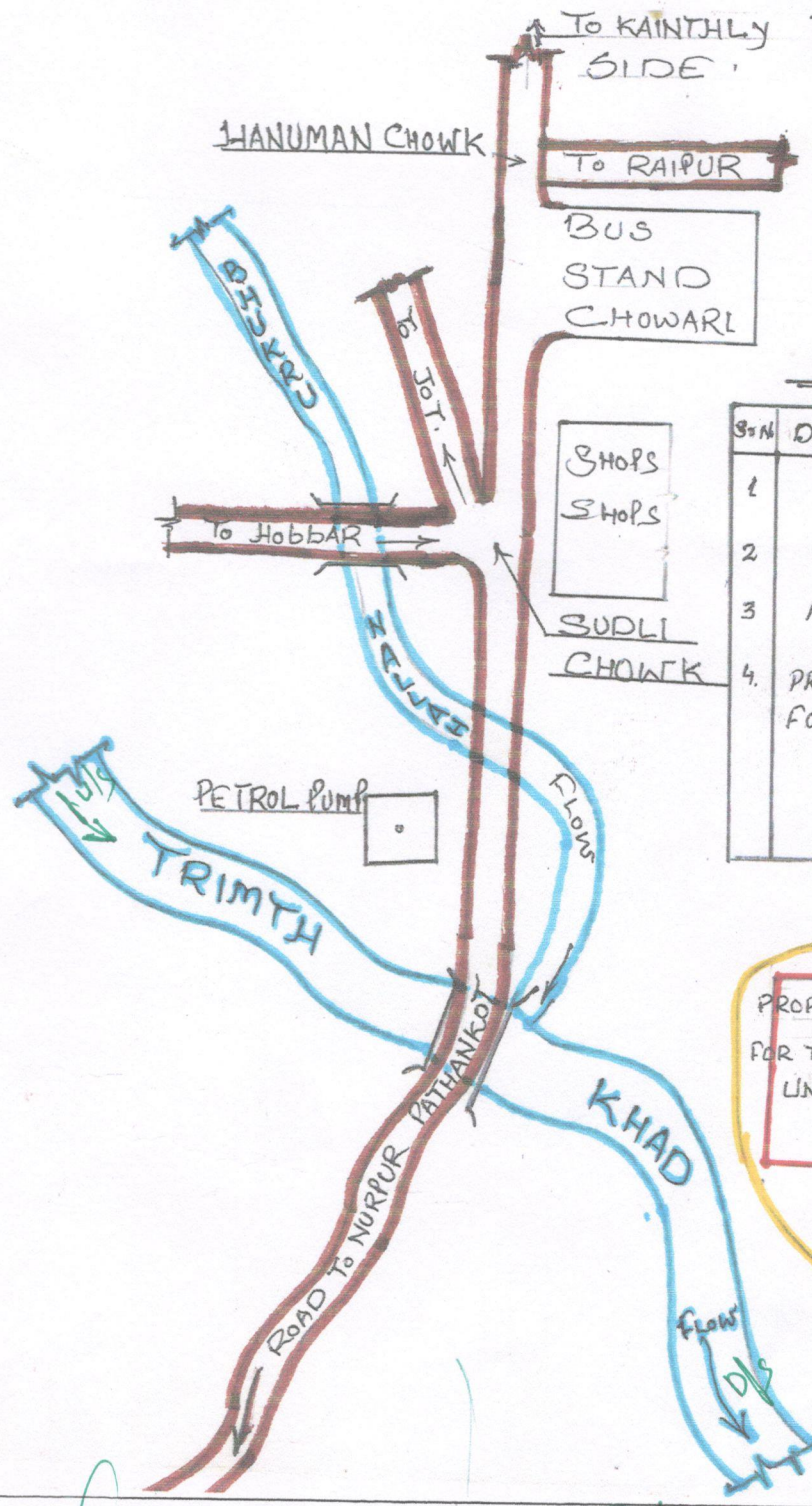 To KAINTHLY
SIDE.
HANUMAN CHOWK
To RAIPUR
BUS
STAND
CHOWARI
BHUKRU
To JOT.
SHOPS
SHOPS
To HobbAR
SUDLI
CHOWK
NALLAH
FLOW
PETROL PUMP
U/S
TRIMTH
KHAD
ROAD To NURPUR PATHANKOT
FLOW
D/S
S:N D
1
2
3
4. PR
FO
PROP
FOR T
UN